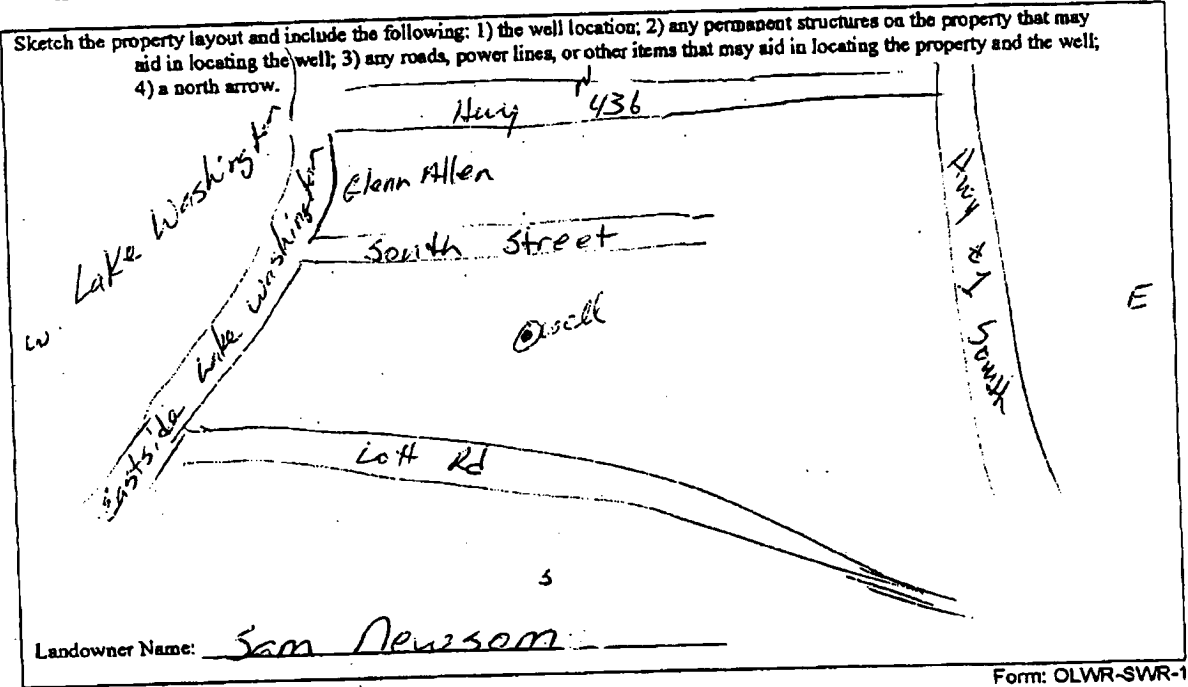 Sketch the property layout and include the following: 1) the well location; 2) any permanent structures on the property that may
aid in locating the well; 3) any roads, power lines, or other items that may aid in locating the property and the well;
4) a north arrow.
N
Hwy 436
Lake Washington
Glenn Allen
Eastside Lake Washington
South Street
Hwy #1 South
W
E
well
Loft Rd
S
Landowner Name: Sam Newsom
Form: OLWR-SWR-1